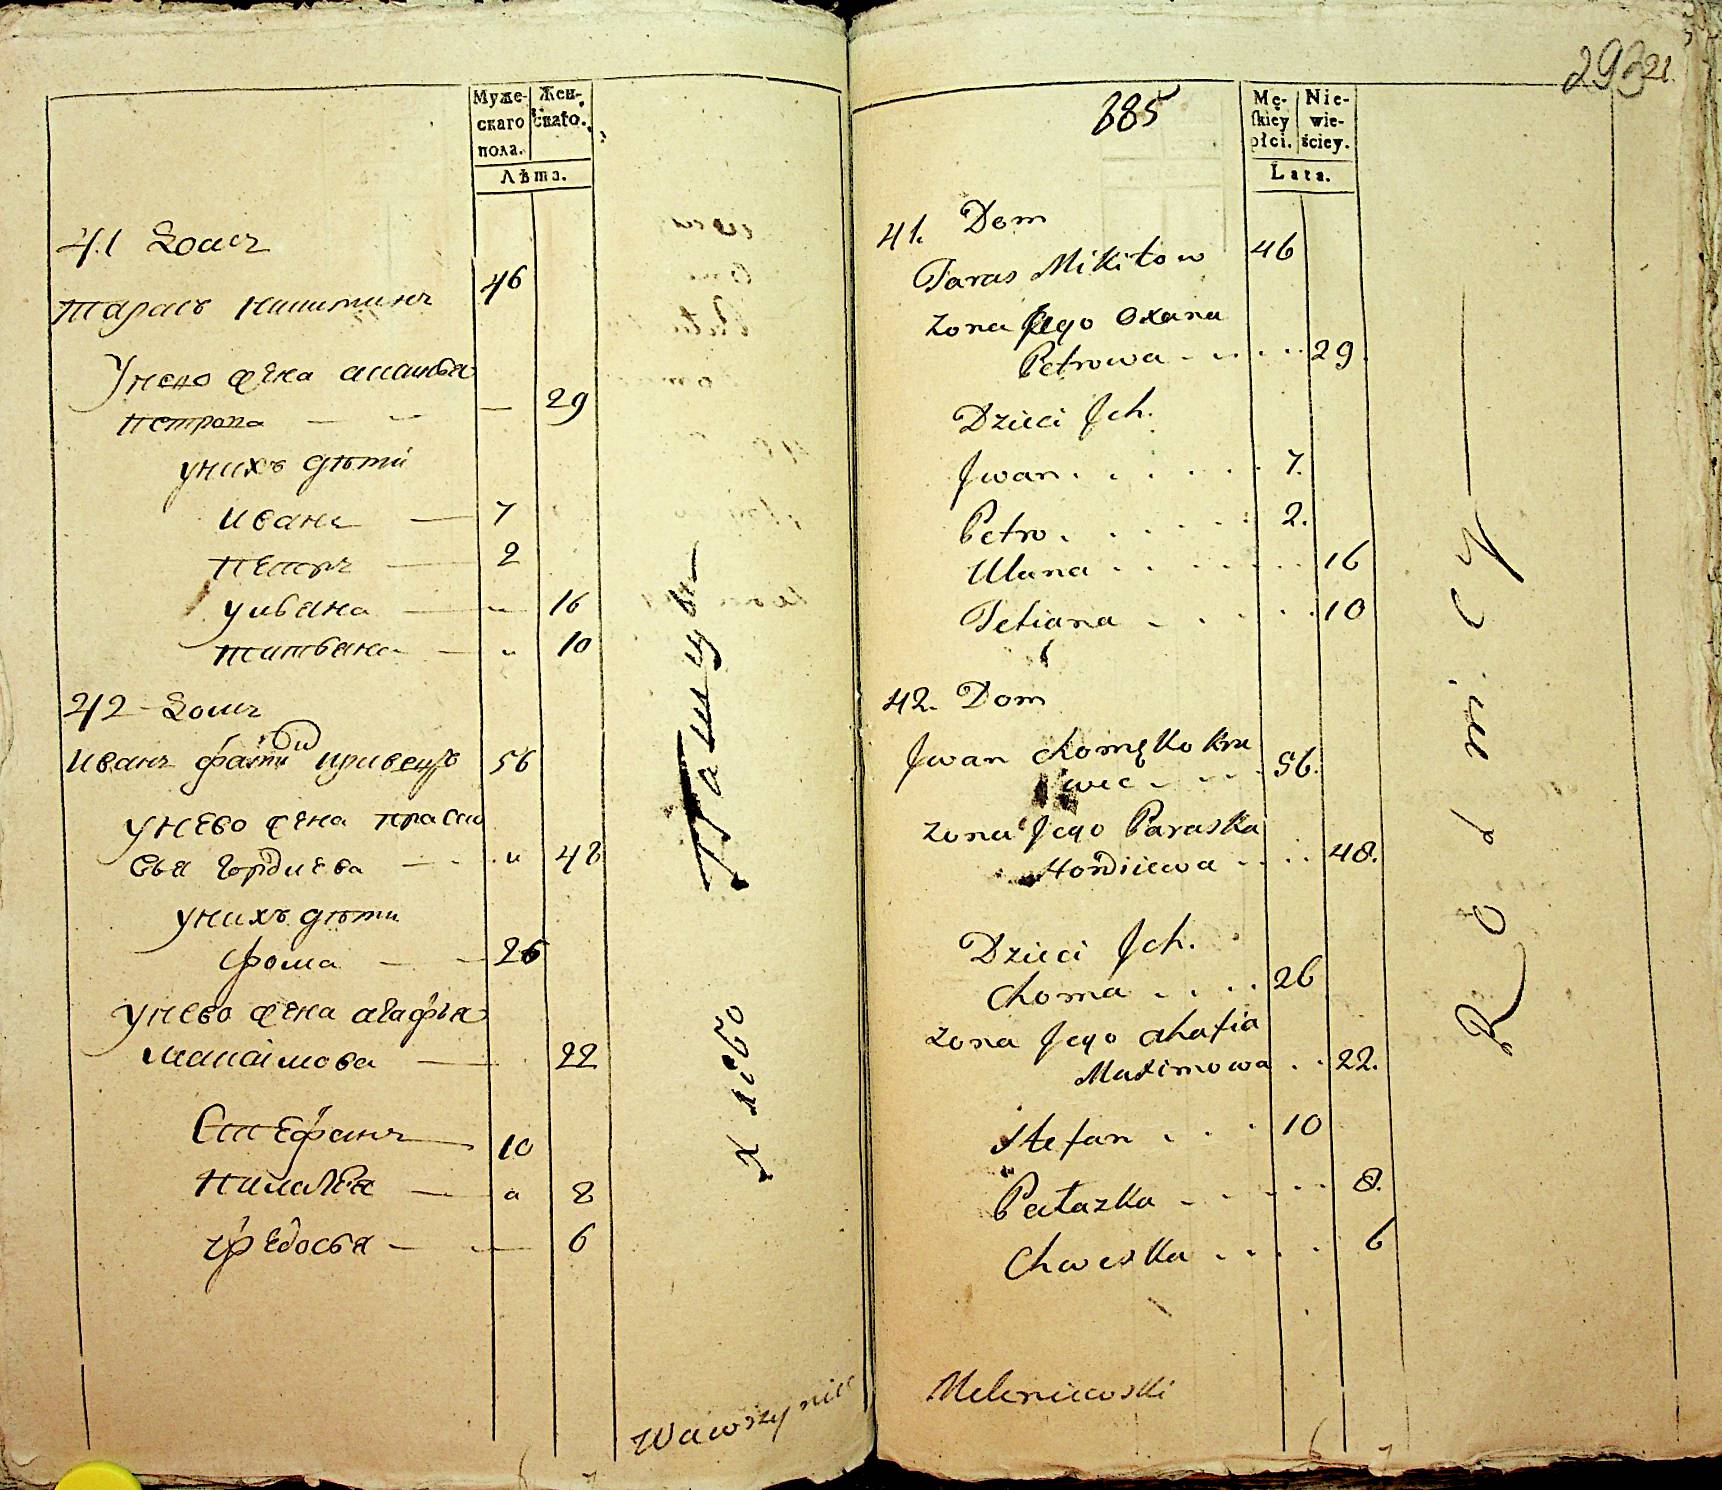 Муже-
скаго
пола.
Жен-
скаго.
Лѣта.
41 домъ
Тарасъ Никитинъ 46
У него жена
Петрова — — — 29
у нихъ дѣти
Иванъ — 7
Петръ — 2
Ульяна — " 16
Татьяна — " 10
42 домъ
Иванъ 56
У нево жена Праско
вья Гордиева — " 48
у нихъ дѣти
Фома — — 26
У нево жена Агафья
Максимова — 22
Стефанъ — 10
Пилагѣя — " 8
Ѳедосья — — 6
Wawrzyniec
885
293
21.
Mę-
skiey
płci.
Nie-
wie-
ściey.
Lata.
41. Dom
Taras Mikitow 46
Zona Jego Oxana
Petrowa . . . . . 29.
Dzieci Jch.
Jwan . . . . . . 7.
Petro . . . . . 2.
Ulana . . . . . . . 16
Tetiana . . . . . 10
42. Dom
Jwan Chomętko Kra
wiec . . . . 56.
Zona Jego Paraska
Hordiiewa . . . . 48.
Dzieci Jch.
Choma . . . . 26
Zona Jego Ahafia
Maximowa . . 22.
Stefan . . . 10
Pałazka . . . . . 8.
Chweska . . . . 6
Meleniewski
Rodnicy